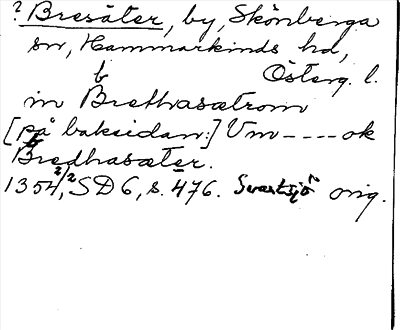 ? Bresäter, by, Skönberga
sn, Hammarkinds hd,
b Österg. l.
in Brethasætrom
[på baksidan:] Vm ---- ok
Bredhasæter.
1354 2/2, SD 6, s. 476. Svartsjö orig.